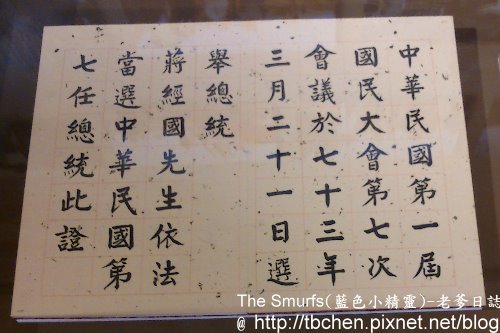 中華民國第一屆
國民大會第七次
會議於七十三年
三月二十一日選
舉總統
蔣經國先生依法
當選中華民國第
七任總統此證
The Smurfs(藍色小精靈)-老爹日誌
@ http://tbchen.pixnet.net/blog